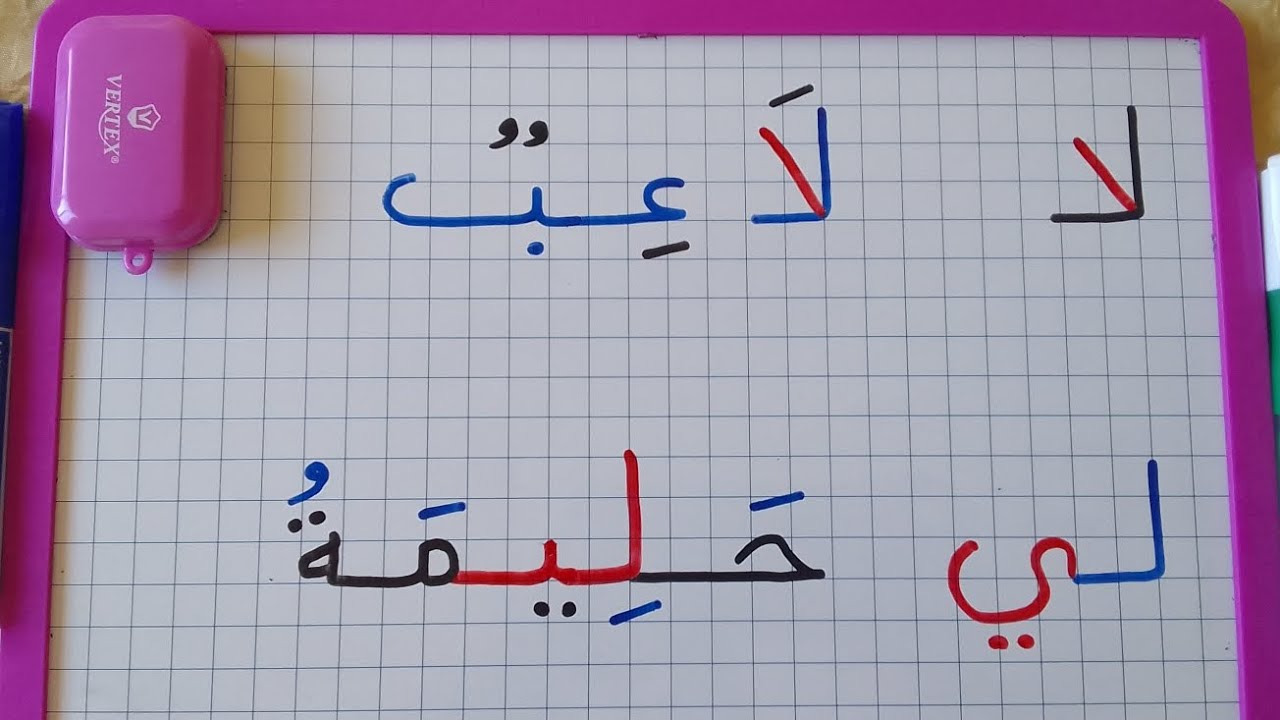 لا لَاعِبٌ
لي حَلِيمَةُ
VERTEX®